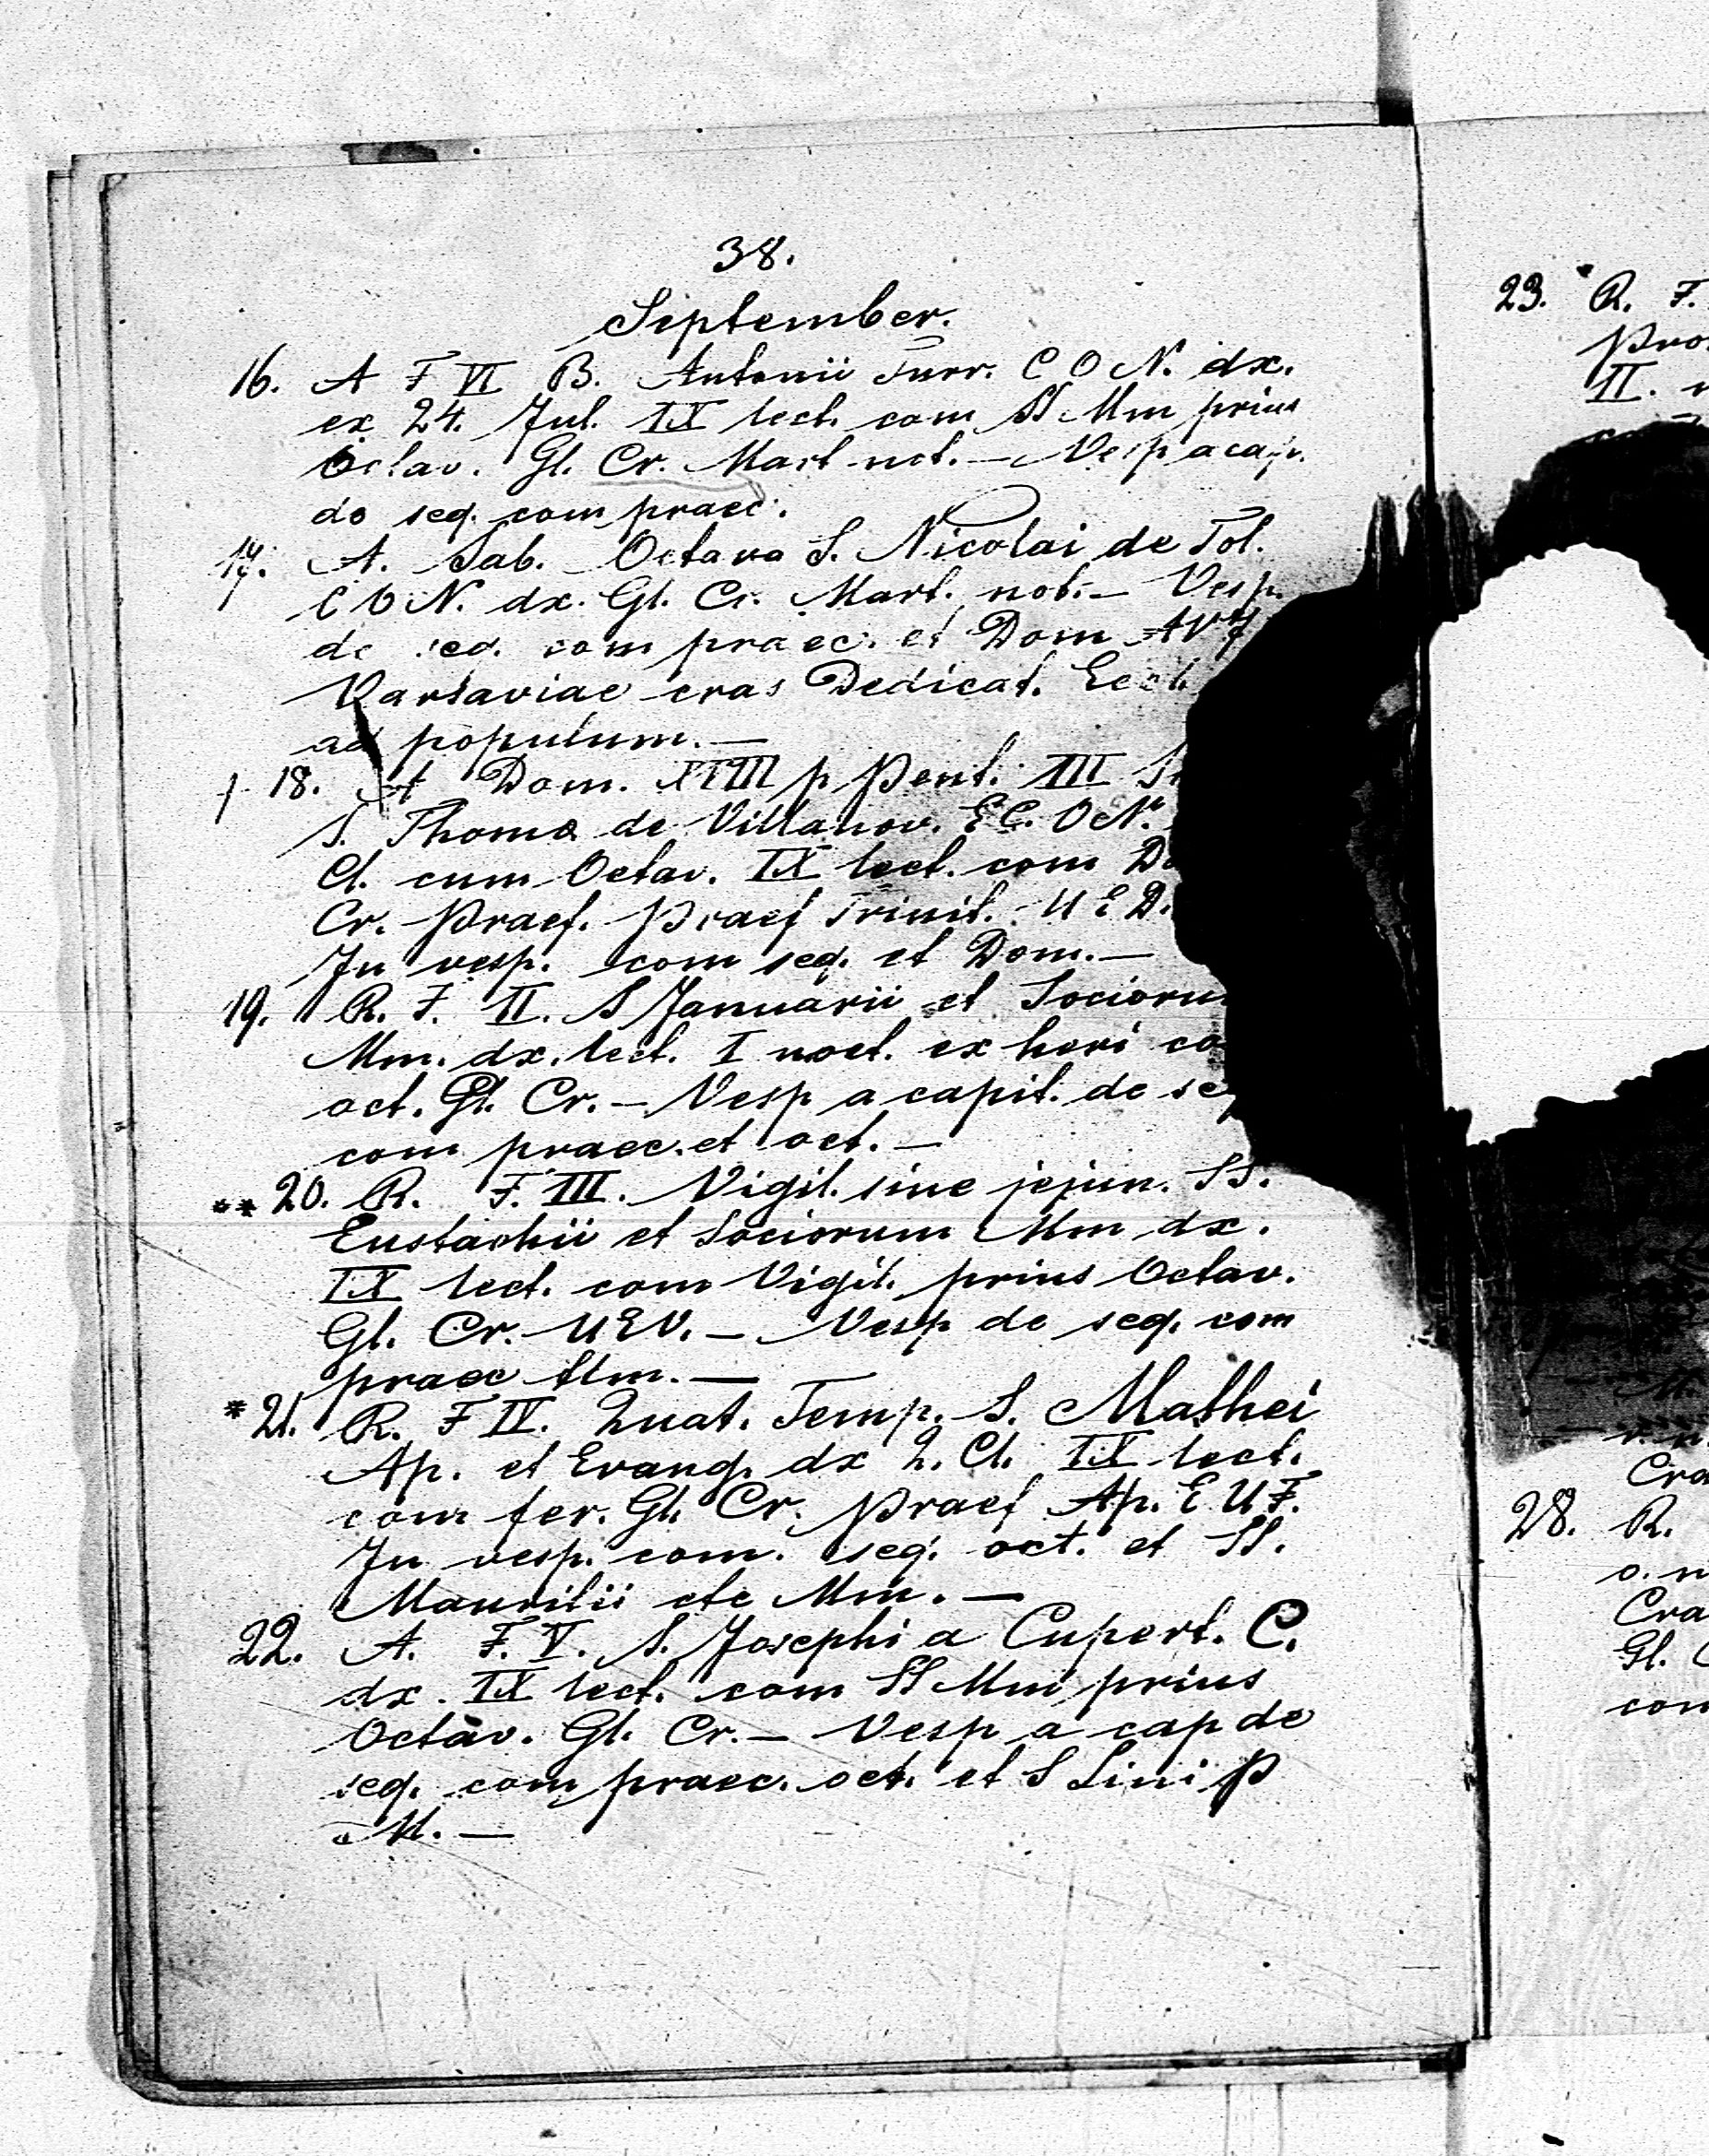 38.
September.
16. A F VI B. Antonii Turr. C O N. dx.
ex 24. Jul. IX lect. com SS Mm prius
Octav. Gl. Cr. Mart not. — Vesp a cap.
do seq. com praec.
17. A. Sab. Octava S. Nicolai de Tol.
C O N. dx. Gl. Cr. Mart. not. — Vesp.
de seq. com praec. et Dom
Varsaviae cras Dedicat. Eccl
ad populum. —
18. A Dom. XVIII p Pent. III
S. Thoma de Villanov. E C. O N.
Cl. cum Octav. IX lect. com
Cr. Praef. Praef Trinit. U E D.
In vesp. com seq. et Dom. —
19. R. F. II. S Januarii et Socioru
Mm. dx. lect. I noct. ex heri
oct. Gl. Cr. — Vesp a capit. de
com praec. et oct. —
** 20. R. F. III. Vigil. sine jejun. SS.
Eustachii et Sociorum Mm dx.
IX lect. com Vigil. prius Octav.
Gl. Cr. U E V. — Vesp de seq. com
praec
* 21. R. F IV. Quat. Temp. S. Mathei
Ap. et Evang. dx 2. Cl. IX lect.
com fer. Gl. Cr. Praef Ap. E U F.
In vesp. com. seq. oct. et SS.
Mauritii etc Mm. —
22. A. F. V. S. Josephi a Cupert. C.
dx. IX lect. com SS Mm prius
Octav. Gl. Cr. — Vesp a cap de
seq. com praec. oct. et S Lini P
M. —
23. R. F.
II.
Cra
28. R.
Cra
Gl.
com